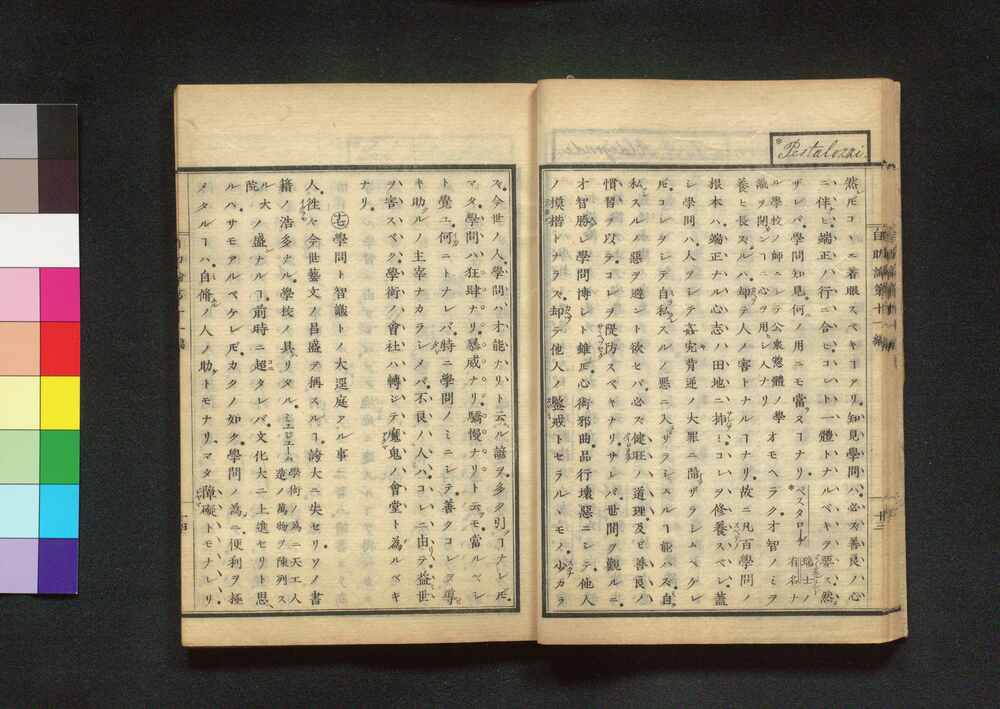 *Pestalozzi.
然𪜈コヽニ着眼スベキヿアリ知見學問ハ必ズ善良ノ心
ニ伴ヒ端正ノ行ニ合ヒコレト一體トナルベキヲ要ス然
ザレバ學問知見何ノ用ニモ當ラヌヿナリ*ペスタロージ 瑞士ノ有名ナ
ル學校ノ師ニシテ公衆惣體ノ學識ヲ開ンヿニ心ヲ用シ人ナリ オモヘラク才智ノミヲ
養ヒ長ズルハ却テ人ノ害トナルヿナリ故ニ凡百學問ノ
根本ハ端正ナル心志ノ田地ニ挿ミコレヲ修養スベシ蓋
シ學問ハ人ヲシテ姦宄背逆ノ大罪ニ陥ザラシムベケレ
𪜈コレヲシテ自私スルノ惡ニ入ザラシムルヿ能ハズ自
私スルノ惡ヲ避ント欲セバ必ズ健旺ノ道理及ビ善良ノ
慣習ヲ以テコレヲ優防スベキナリサレバ世間ヲ觀ルニ
才智勝レ學問博シト雖𪜈心術邪曲品行壞惡ニシテ他人
ノ摸楷トナラズ却テ他人ノ鑒戒トセラルヽモノ少カラ
自助論第十一編
ズ今世ノ人學問ハ才能ナリト云ル諺ヲ多ク引ヿナレ𪜈
マタ學問ハ狂肆ナリ暴威ナリ驕慢ナリト云モ當ルベシ
ト覺ユ何ニトナレバ特ニ學問ノミニシテ善クコレヲ導
キ助ルノ主宰ナカラシメバ不良ノ人ハコレニ由テ益世
ハ害スベク學術ノ會社ハ轉シテ魔鬼ノ會堂ト為ルベキ
ナリ
㊆學問ト智識トノ大逕庭アル事
人往々今世藝文ノ昌盛ヲ稱スルヿ誇大ニ失セリソノ書
籍ノ浩多ナル學校ノ具リタルミュエジューム 學術ノ為ニ天工人造ノ萬物ヲ陳列スル大院
ノ盛ナルヿ前時ニ超タレバ文化大ニ上進セリト思
ルハサモアルベケレ𪜈カクノ如ク學問ノ為ニ便利ヲ極
メタルヿハ自修ノ人ノ助トモナリマタ障礙トモナレリ